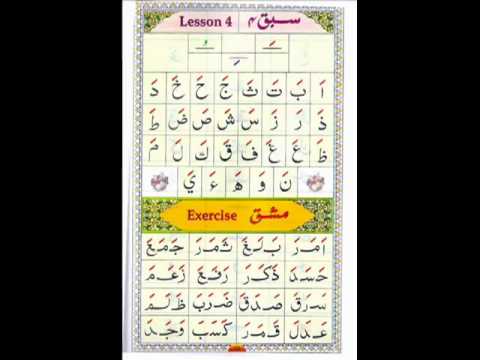 سبق ۴ Lesson 4
اَ بَ تَ ثَ جَ حَ خَ دَ
ذَ رَ زَ سَ شَ صَ ضَ طَ
ظَ عَ غَ فَ قَ كَ لَ مَ
نَ وَ هَ ءَ يَ
مشق Exercise
اَمَرَ بَلَغَ ثَمَرَ جَمَعَ
حَسَدَ ذَكَرَ رَفَعَ زَعَمَ
سَرَقَ صَدَقَ ضَرَبَ ظَلَمَ
عَدَلَ قَمَرَ كَسَبَ وَجَدَ